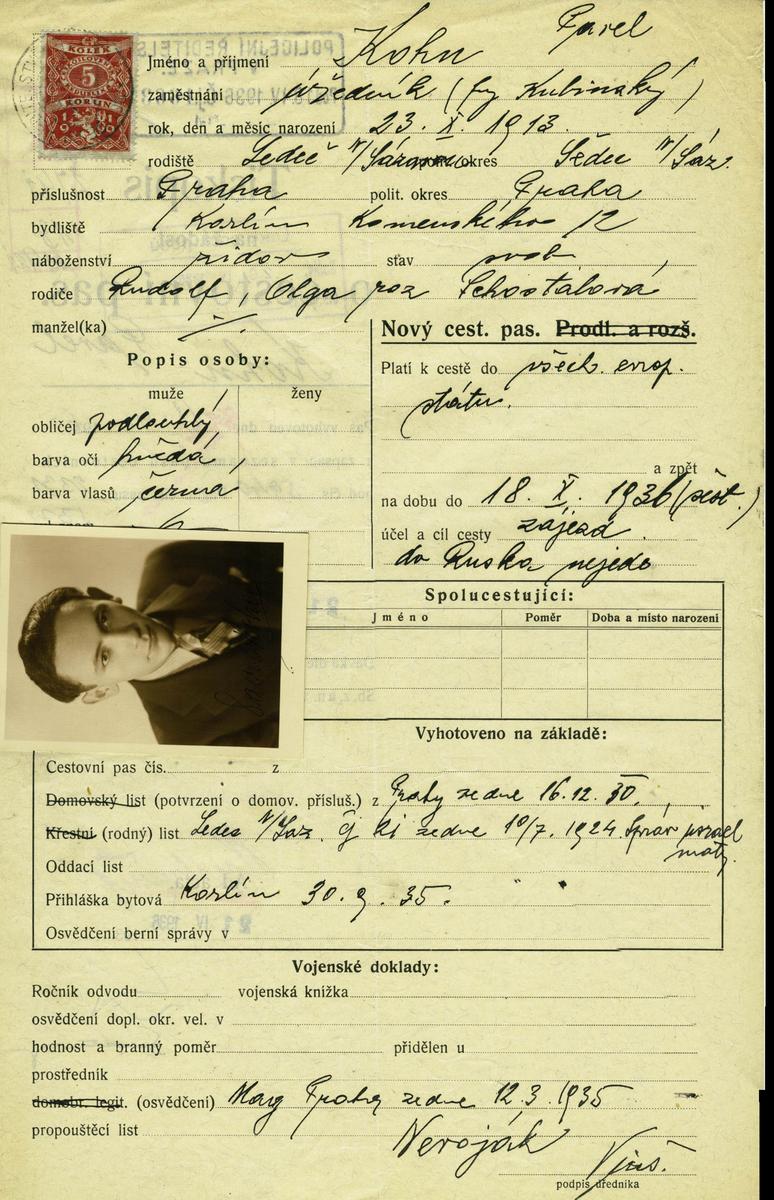 Pavel
Jméno a příjmení Kohn
zaměstnání úředník (fy Kubinský)
rok, den a měsíc narození 23. X. 1913.
rodiště Ledeč n/Sázavou okres Ledeč n/Sáz.
příslušnost Praha polit. okres Praha
bydliště Karlín Komenského 12
náboženství židov stav svob
rodiče Rudolf, Olga roz Schostalová
manžel(ka)
Nový cest. pas. Prodl. a rozš.
Popis osoby:
Platí k cestě do všech. evrop.
muže ženy
států.
obličej podlouhlý
barva očí hnědá
a zpět
barva vlasů černá
na dobu do 18. X. 1936 (šest.)
účel a cíl cesty zájezd
do Ruska nejede
Spolucestující:
Jméno Poměr Doba a místo narození
Vyhotoveno na základě:
Cestovní pas čís. z
Domovský list (potvrzení o domov. přísluš.) z Prahy ze dne 16.12.30.
Křestní (rodný) list Ledeč n/Sáz. ze dne 10/7. 1924 Správ izrael
mat.
Oddací list
Přihláška bytová Karlín 30.9.35.
Osvědčení berní správy v
Vojenské doklady:
Ročník odvodu vojenská knížka
osvědčení dopl. okr. vel. v
hodnost a branný poměr přidělen u
prostředník
domobr. legit. (osvědčení) Mag Prahy ze dne 12.3.1935
propouštěcí list Nevoják
podpis úředníka
KOLEK
5
KORUN